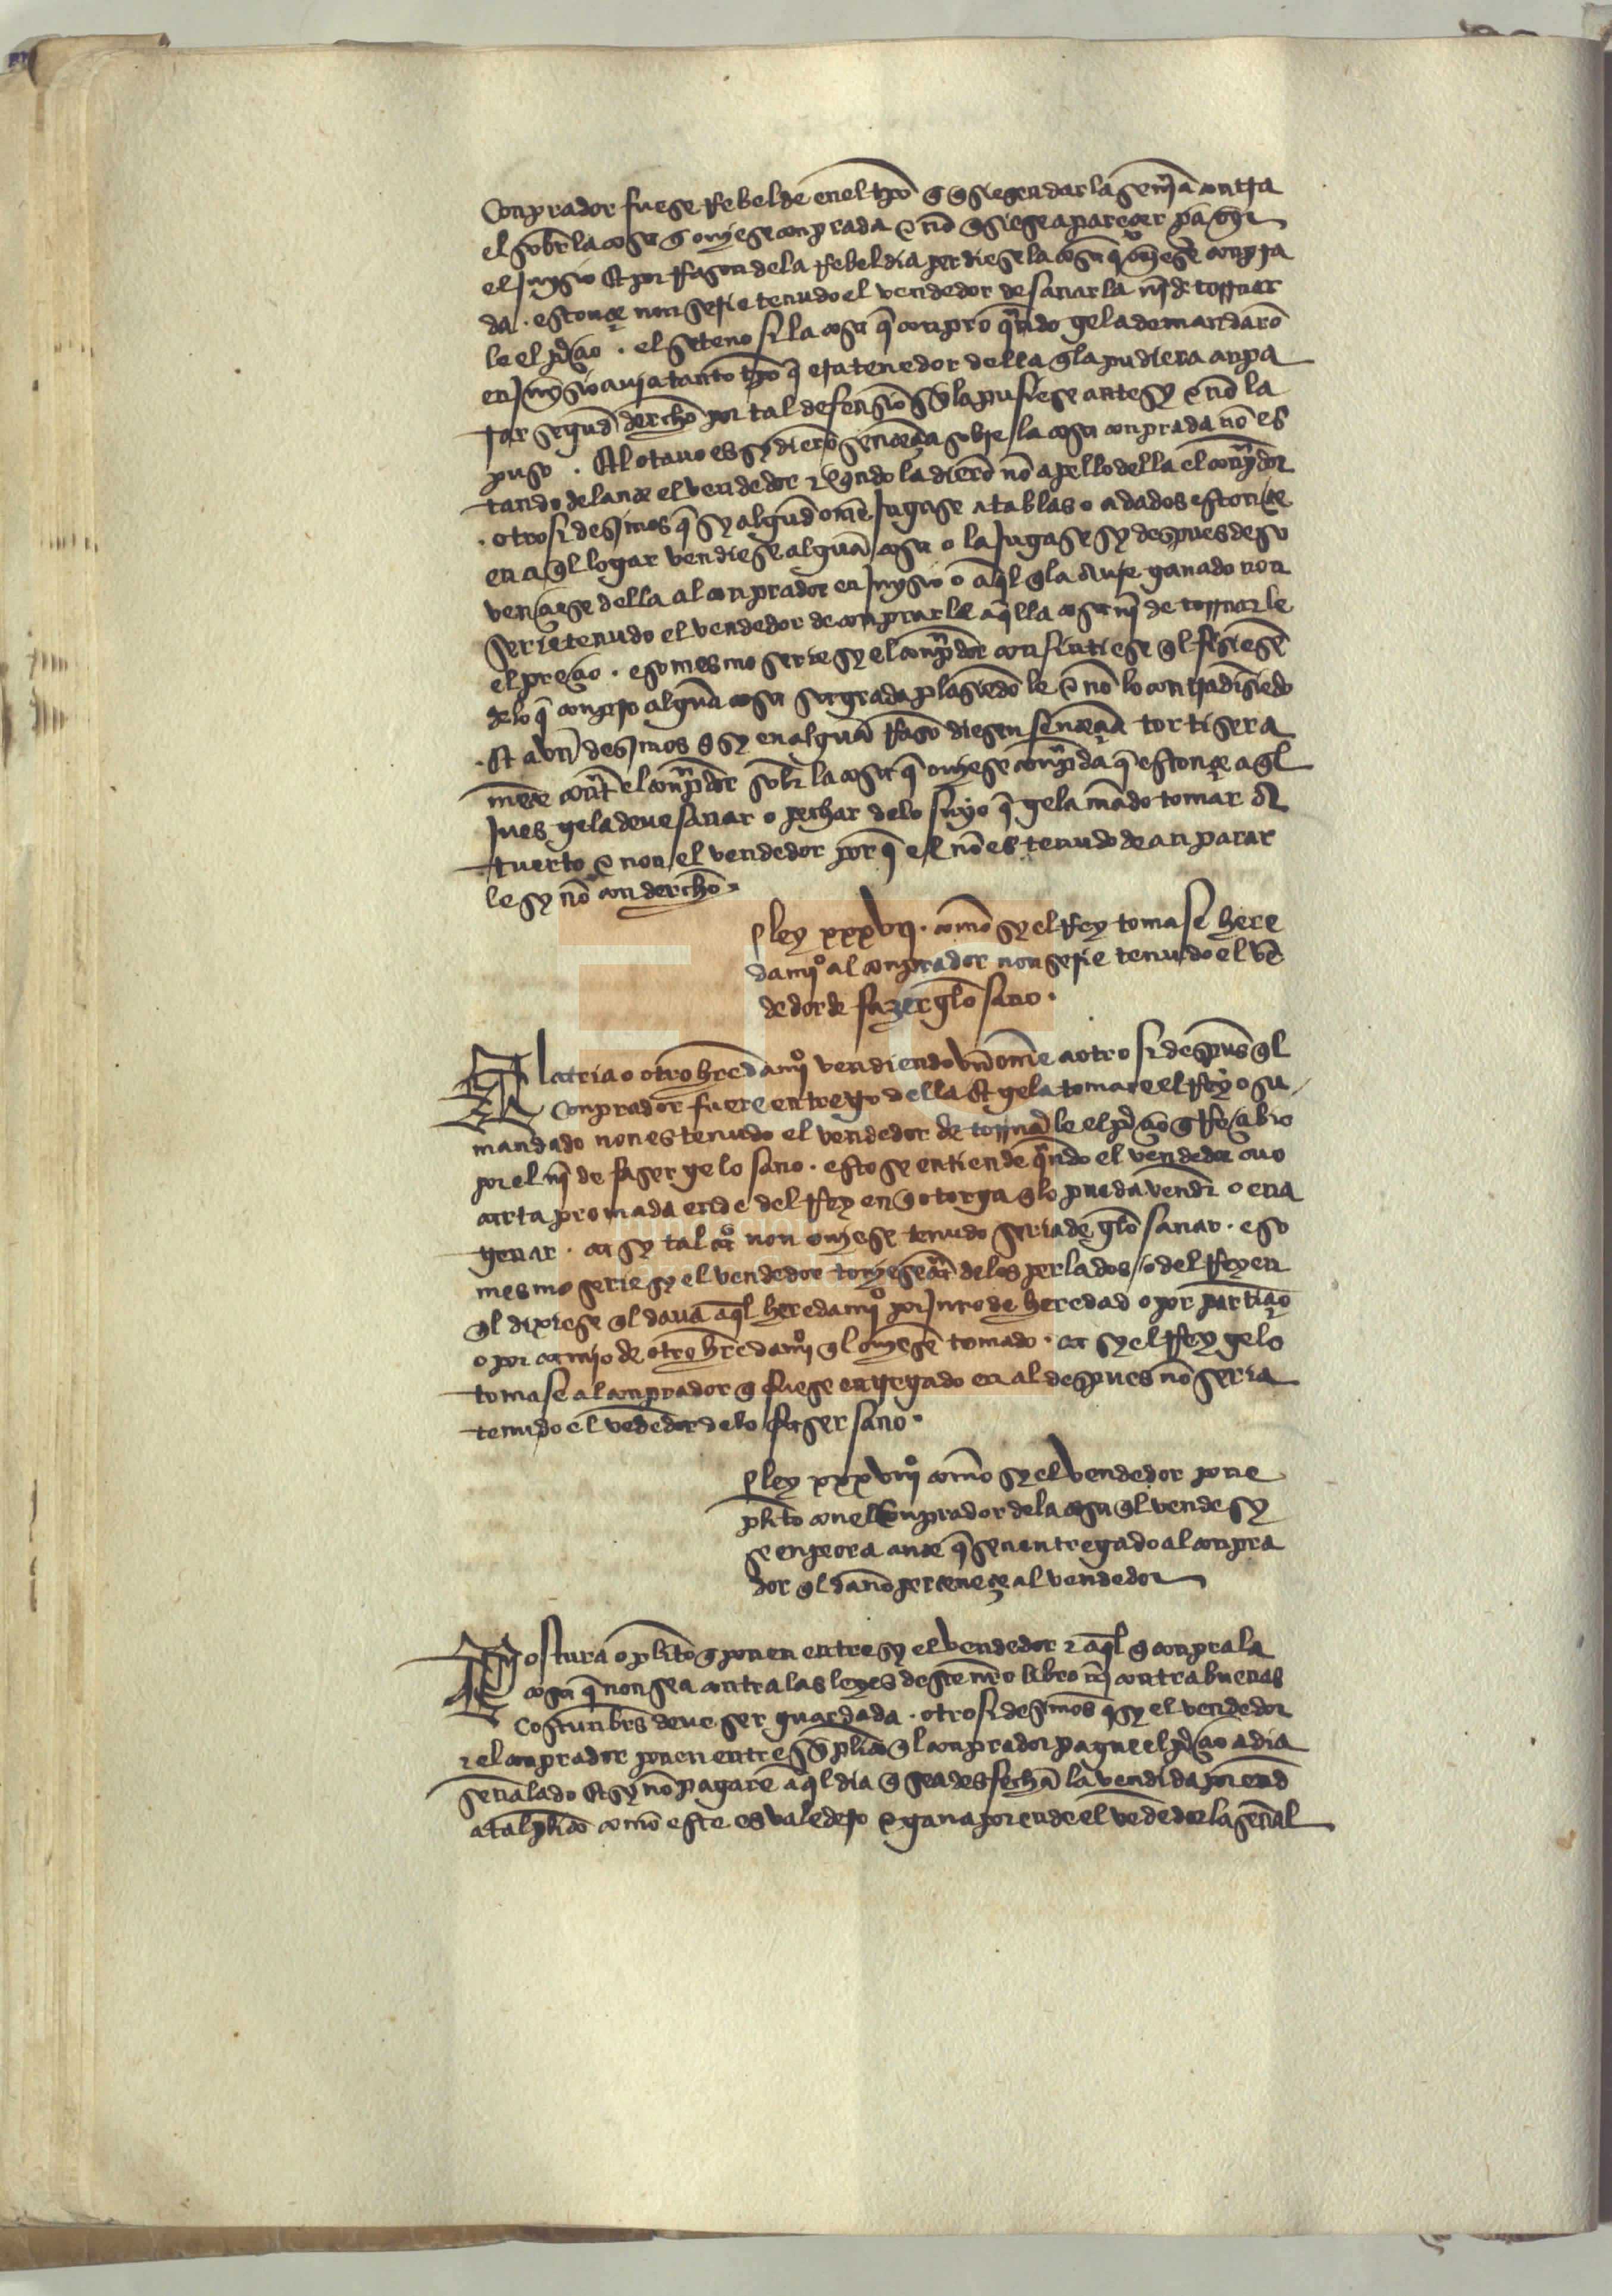 Conprador fuese Rebelde enel tpō q̃ q̃siesen dar la sent̃ia contra
el sobre la cosa q̃ ouiese conprada & nō q̃siese aparesçer pa oyr
el Juysio Et por Rason dela Rebeldia perdiese la cosa q̃ ouiese conpra
da . estonçe non serie tenudo el vendedor de sanarla nĩ de tornar
le el p̃çio . el seteno si la cosa q̃ conpro quãdo gela demandarō
en Juysio auia tanto tpō q̃ era tenedor della q̃ la pudiera anpa
rar segud̃ derecho por tal defension sy la pusiese ante sy & nō la
puso . El otauo es sy dierō sentençia sobre la cosa conprada nō es
tando delante el vendedor & quãdo la dierō nō apello della el conp̃dor
. otrosi desimos q̃ sy algud̃ ome Jugase a tablas o a dados estonçe
en aq̃l logar vendiese alguã cosa o la Jugase sy despues deso
vençiese della al conprador en Juysio o aq̃l q̃ la ouiese ganado non
serie tenudo el vendedor de conprarle aq̃lla cosa nĩ de tornarle
el preçio . eso mesmo serie sy el conp̃dor consintiese q̃l fisiesẽ
delo q̃ conpro alguã cosa sagrada plasiẽdo le & nō lo contradisiẽdo
. Et avn desimos q̃ sy en alguã Rasō diesen sentençia tortisera
mẽte cont̃ el conp̃dor sobre la cosa q̃ ouiese conp̃da q̃ estonçe aq̃l
Jues gela deue sanar o pechar delo suyo q̃ gela mãdo tomar a
tuerto & non el vendedor por q̃ el nō es tenudo de anparar
le sy nō con derecho
ley xxxvij . como sy el Rey tomase here
damjº al conprador non serie tenudo el vẽ
dedor de fazer gelo sano .
Latria o otro heredamjº vendiendo vñ ome a otro si despues q̃l
Conprador fuere entrego della Et gela tomare el Rey o su
mandado non es tenudo el vendedor de tornar le el p̃çio q̃ Resçibio
por el nĩ de faser gelo sano . esto se entiende quãdo el vendedor ouo
carta promada ende del Rey en q̃ otorga q̃ lo pueda vender o ena
genar . ca sy tal carta non ouiese tenudo seria de gelo sanar . eso
mesmo serie sy el vendedor touiese carta delos perlados o del Rey en
q̃l dixiese q̃l daua aq̃l heredamjº por Juro de heredad o por partiçiō
o por camio de otro heredamjº q̃l ouiesẽ tomado . ca sy el Rey gelo
tomase al conprador q̃ fuese entregado en al despues nō seria
tenudo el vẽdedor delo faser sano .
ley xxxviijº como sy el vendedor pone
pleito con el Conprador dela cosa q̃l vende sy
se enpeora ante q̃ sea entregado al conpra
dor q̃l daño perteneçe al vendedor
Postura o pleito q̃ ponen entre sy el vendedor & aq̃l q̃ conpra la
cosa q̃ non sea contra las leyes deste nr̃o libro nĩ contra buenas
Costunbres deue ser guardada . otrosi desimos q̃ sy el vendedor
& el conprador ponen entre sy pleito q̃l conprador pague el p̃çio a dia
señalado Et sy nō pagare aq̃l dia q̃ sea desfecha la vendida por end
a tal pleito como este es valedero & gana por ende el vẽdedor la señal